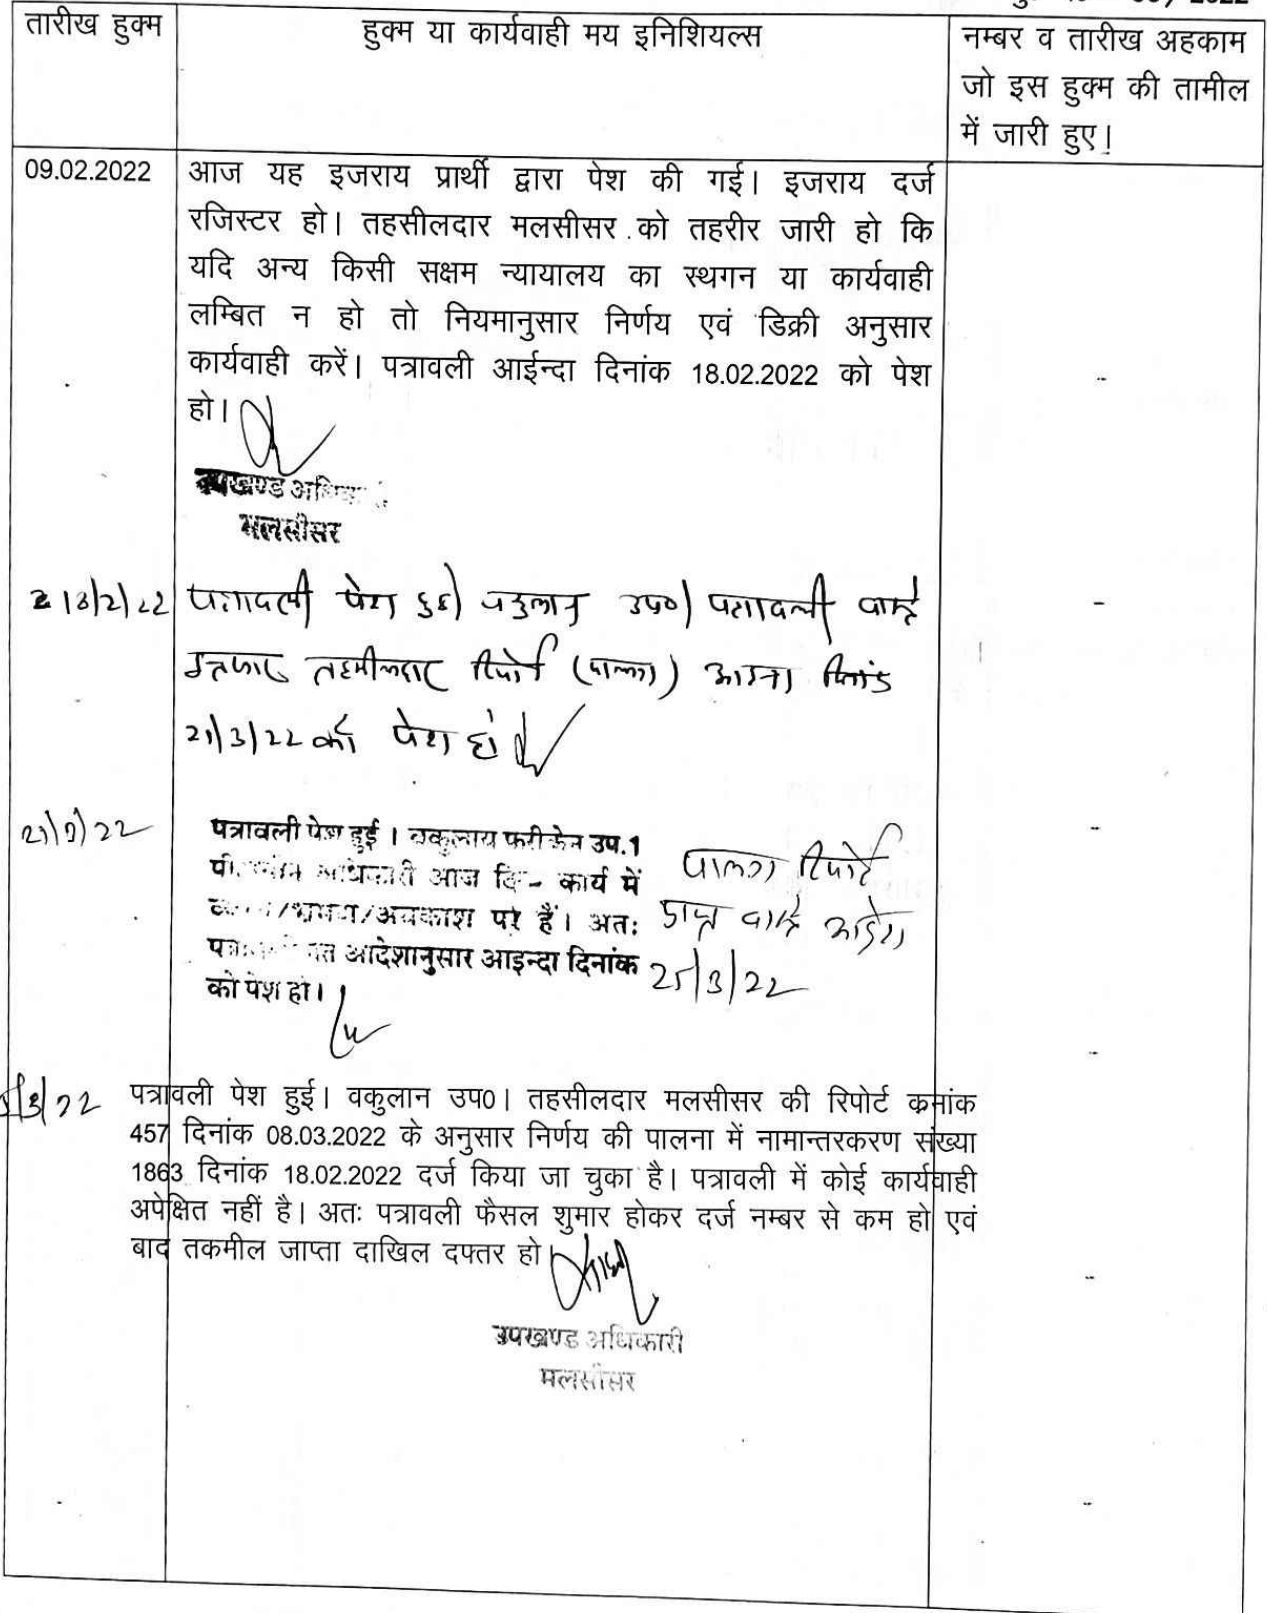 2022
तारीख हुक्म
हुक्म या कार्यवाही मय इनिशियल्स
नम्बर व तारीख अहकाम
जो इस हुक्म की तामील
में जारी हुए।
09.02.2022
आज यह इजराय प्रार्थी द्वारा पेश की गई। इजराय दर्ज
रजिस्टर हो। तहसीलदार मलसीसर को तहरीर जारी हो कि
यदि अन्य किसी सक्षम न्यायालय का स्थगन या कार्यवाही
लम्बित न हो तो नियमानुसार निर्णय एवं डिक्री अनुसार
कार्यवाही करें। पत्रावली आईन्दा दिनांक 18.02.2022 को पेश
हो।
उपखण्ड अधिका
मलसीसर
18/2/22 पत्रावली पेश हुई। वकुलान उप०। पत्रावली वास्ते
इन्तजार तहसीलदार रिपोर्ट (पालना) आइन्दा दिनांक
21/3/22 को पेश हो
21/3/22
पत्रावली पेश हुई। वकुलाय फरीकेन उप.1
आज कार्य में
/भ्रमण/अवकाश पर हैं। अतः
आदेशानुसार आइन्दा दिनांक
को पेश हो।
पालना रिपोर्ट
प्राप्त वास्ते आदेश
25/3/22
/3/22
पत्रावली पेश हुई। वकुलान उप0। तहसीलदार मलसीसर की रिपोर्ट क्रमांक
457 दिनांक 08.03.2022 के अनुसार निर्णय की पालना में नामान्तरकरण संख्या
1863 दिनांक 18.02.2022 दर्ज किया जा चुका है। पत्रावली में कोई कार्यवाही
अपेक्षित नहीं है। अतः पत्रावली फैसल शुमार होकर दर्ज नम्बर से कम हो एवं
बाद तकमील जाप्ता दाखिल दफ्तर हो।
उपखण्ड अधिकारी
मलसीसर